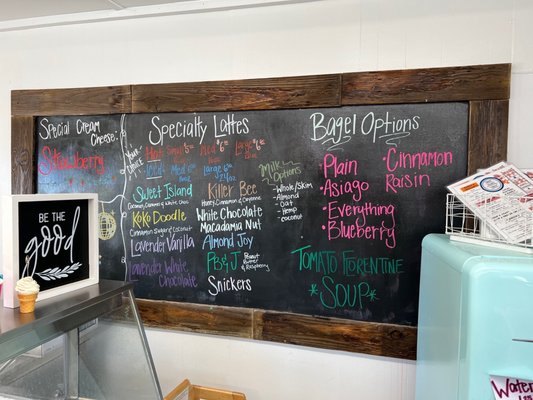 Special Cream
Cheese:
Strawberry
Specialty Lattes
Hot
Small
Med
Large
Iced
Med
Large
Sweet Island
Coconut, Caramel & white Choc
Koko Doodle
Cinnamon Sugar & Coconut
Lavender Vanilla
Lavender White
Chocolate
Killer Bee
Honey, Cinnamon & Cayenne
White Chocolate
Macadamia Nut
Almond Joy
PB & J
Peanut
Butter
& Raspberry
Snickers
Milk
Options
- Whole/Skim
- Almond
- Oat
- hemp
- coconut
Bagel Options
• Plain
• Asiago
• Everything
• Blueberry
• Cinnamon
Raisin
Tomato Florentine
* Soup *
BE THE
good
Water